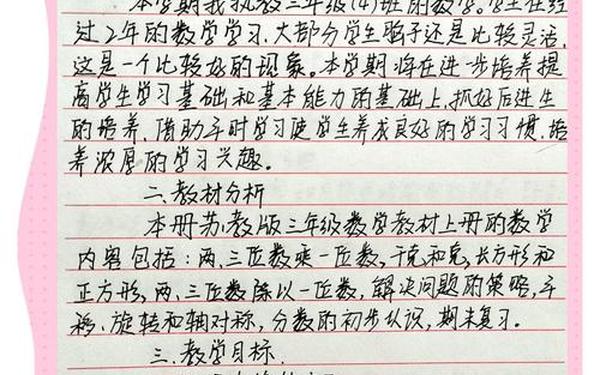 本学期我执教三年级(4)班的数学。学生在经
过2年的数学学习,大部分学生脑子还是比较灵活,
这是一个比较好的现象。本学期将在进一步培养提
高学生学习基础和基本能力的基础上,抓好后进生
的培养,借助平时学习使学生养成良好的学习习惯,培
养浓厚的学习兴趣。
二、教材分析
本册苏教版三年级数学教材上册的数学
内容包括:两、三位数乘一位数,千克和克,长方形和
正方形,两、三位数除以一位数,解决问题的策略,平
移、旋转和轴对称,分数的初步认识,期末复习。
三、教学目标